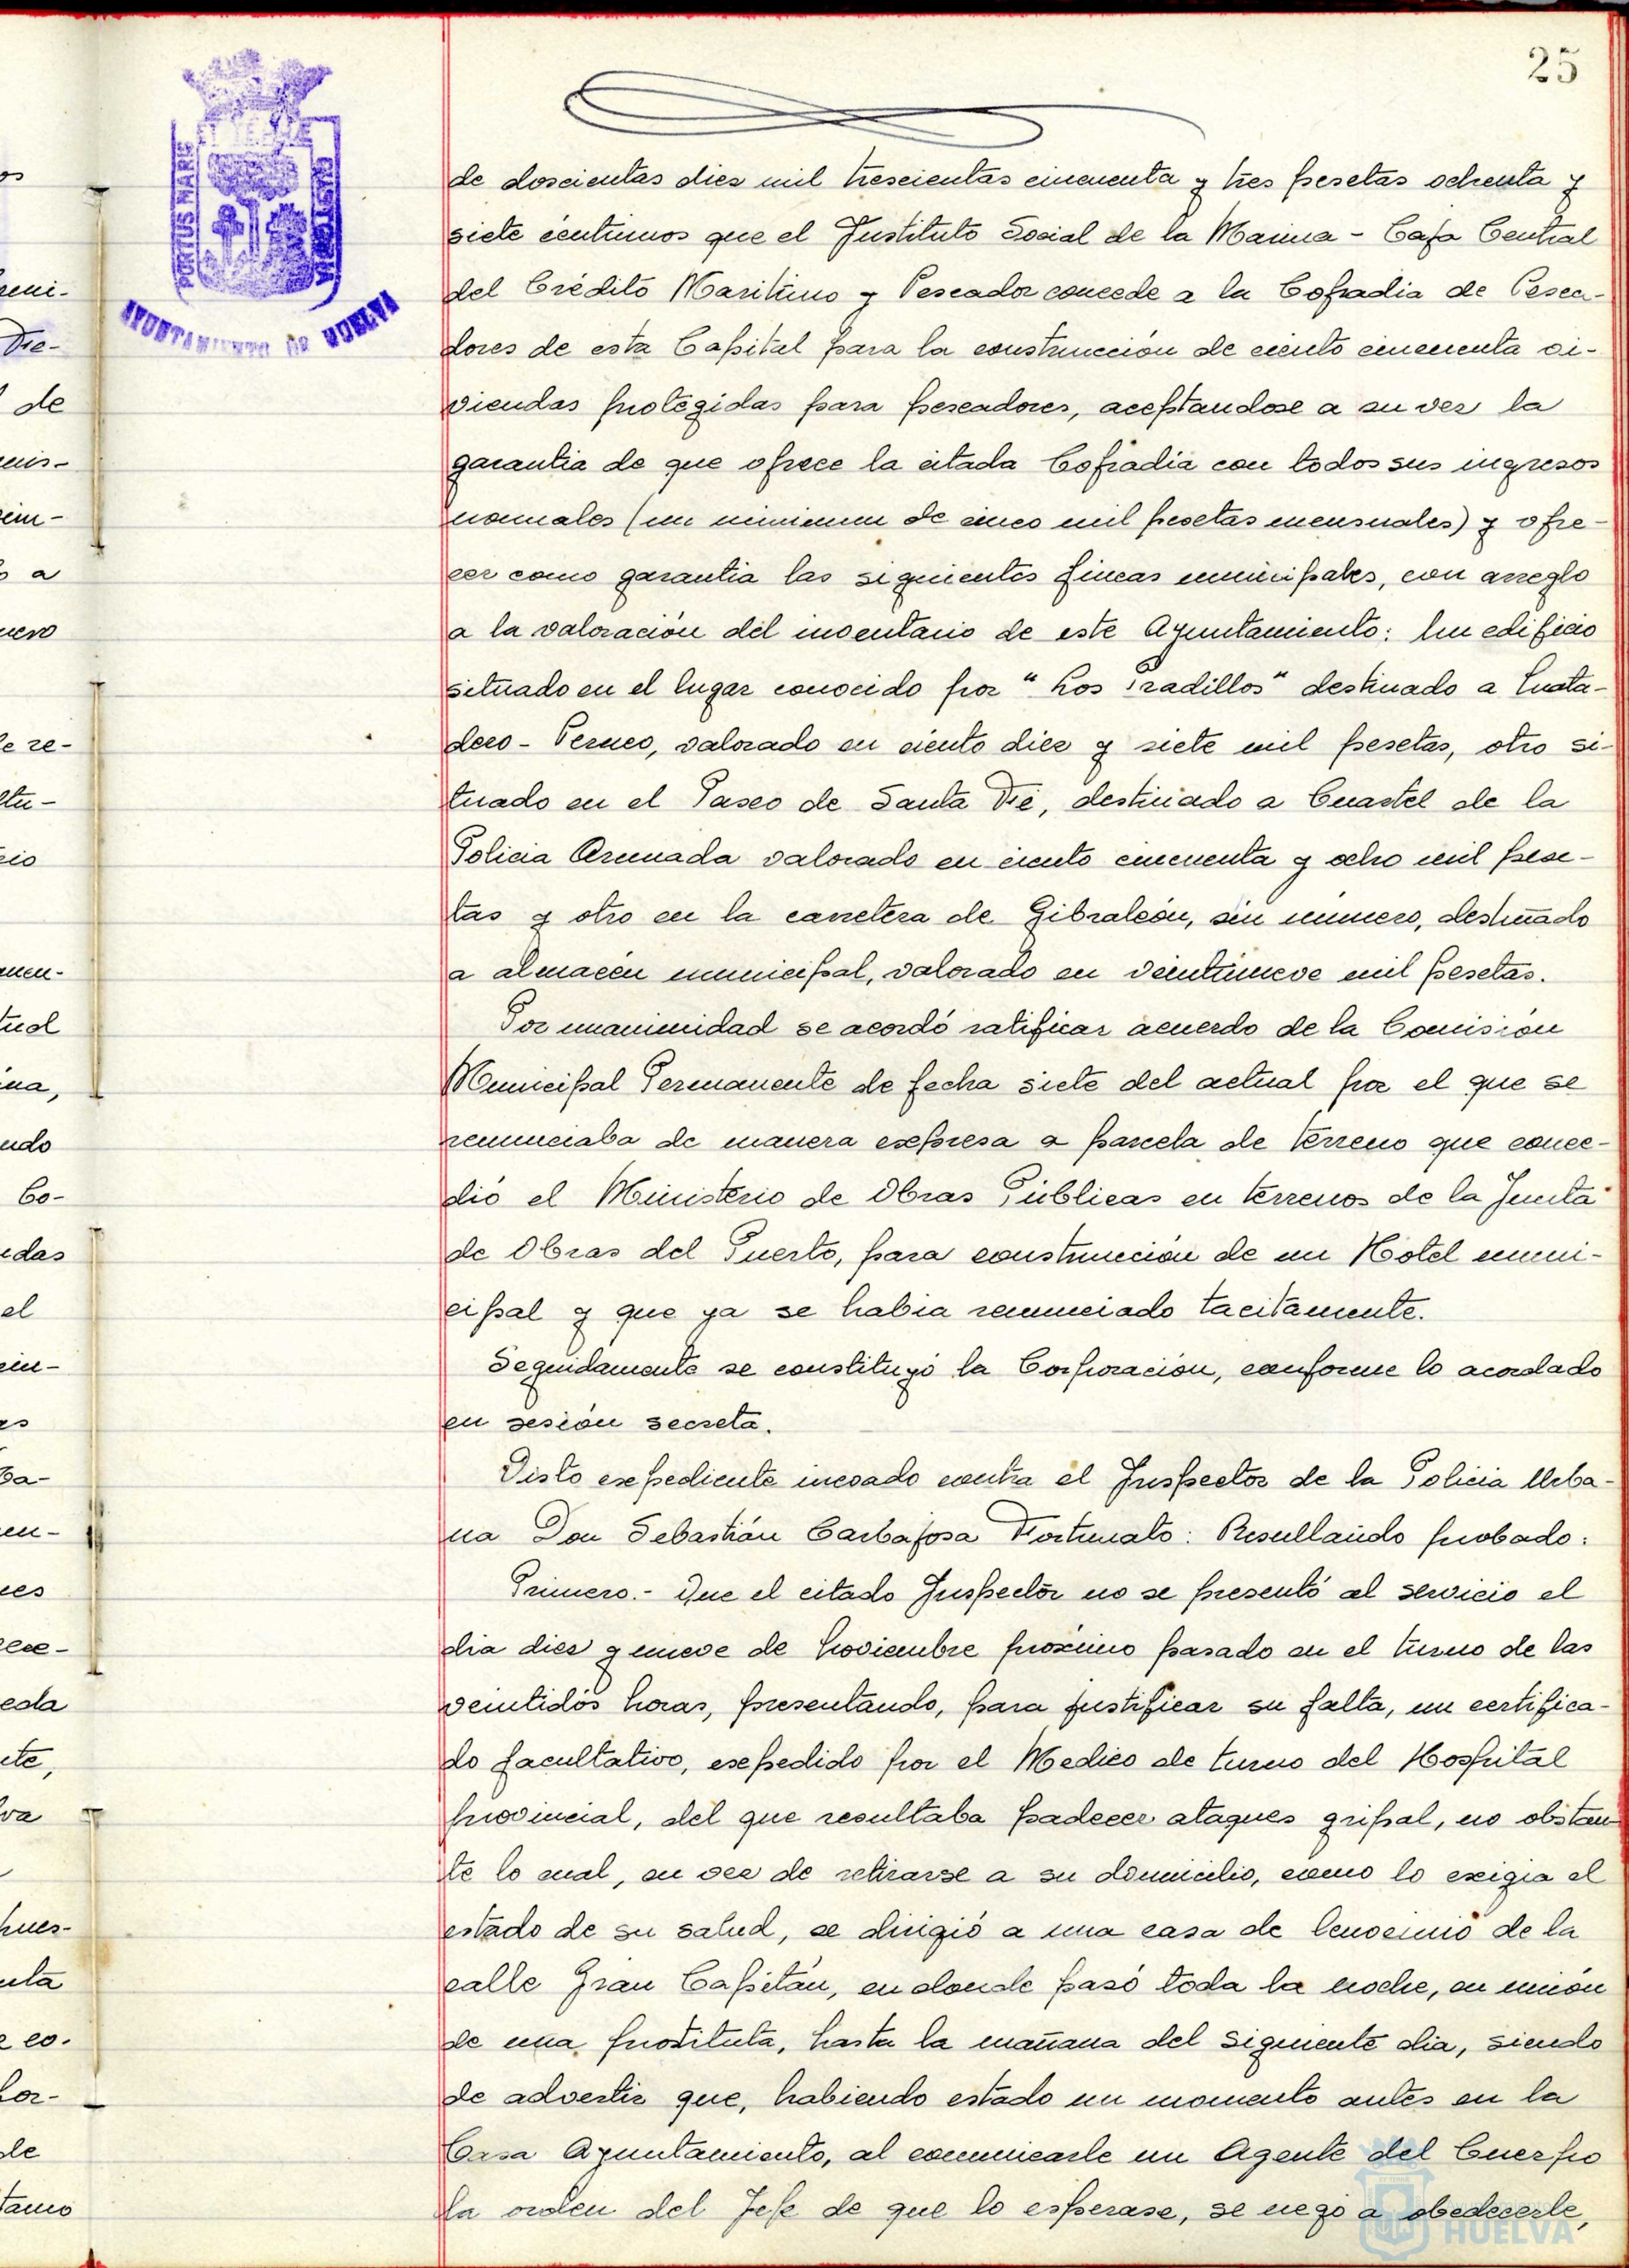 25
PORTUS MARIS
ET TERRAE
CUSTODIA
AYUNTAMIENTO DE HUELVA
de doscientas diez mil trescientas cincuenta y tres pesetas ochenta y
siete céntimos que el Instituto Social de la Marina - Caja Central
del Crédito Maritimo y Pescador concede a la Cofradia de Pesca-
dores de esta Capital para la construcción de ciento cincuenta vi-
viendas protegidas para pescadores, aceptandose a su vez la
garantia de que ofrece la citada Cofradia con todos sus ingresos
normales (un minimun de cinco mil pesetas mensuales) y ofre-
cer como garantia las siguientes fincas municipales, con arreglo
a la valoración del inventario de este Ayuntamiento: Un edificio
situado en el lugar conocido por "Los Pradillos" destinado a
dero - Perneo, valorado en ciento diez y siete mil pesetas, otro si-
tuado en el Paseo de Santa Fé, destinado a Cuartel de la
Policia Armada valorado en ciento cincuenta y ocho mil pese-
tas y otro en la carretera de Gibraleón, sin número, destinado
a almacen municipal, valorado en veintinueve mil pesetas.
Por unanimidad se acordó ratificar acuerdo de la Comisión
Municipal Permanente de fecha siete del actual por el que se
renunciaba de manera expresa a parcela de terreno que conce-
dió el Ministerio de Obras Públicas en terrenos de la Junta
de Obras del Puerto, para construcción de un Hotel muni-
cipal y que ya se habia renunciado tacitamente.
Seguidamente se constituyó la Corporación, conforme lo acordado
en sesión secreta.
Visto expediente incoado contra el Inspector de la Policia Urba-
na Don Sebastián Carbajosa Fortunato: Resultando probado:
Primero.- Que el citado Inspector no se presentó al servicio el
dia diez y nueve de Noviembre próximo pasado en el turno de las
veintidós horas, presentando, para justificar su falta, un certifica-
do facultativo, expedido por el Medico de turno del Hospital
provincial, del que resultaba padecer ataques gripal, no obstan-
te lo cual, en vez de retirarse a su domicilio, como lo exigia el
estado de su salud, se dirigió a una casa de lenocinio de la
calle Gran Capitán, en donde pasó toda la noche, en unión
de una prostituta, hasta la mañana del siguiente dia, siendo
de advertir que, habiendo estado un momento antes en la
Casa Ayuntamiento, al comunicarle un Agente del Cuerpo
la orden del Jefe de que lo esperase, se negó a obedecerle,
HUELVA